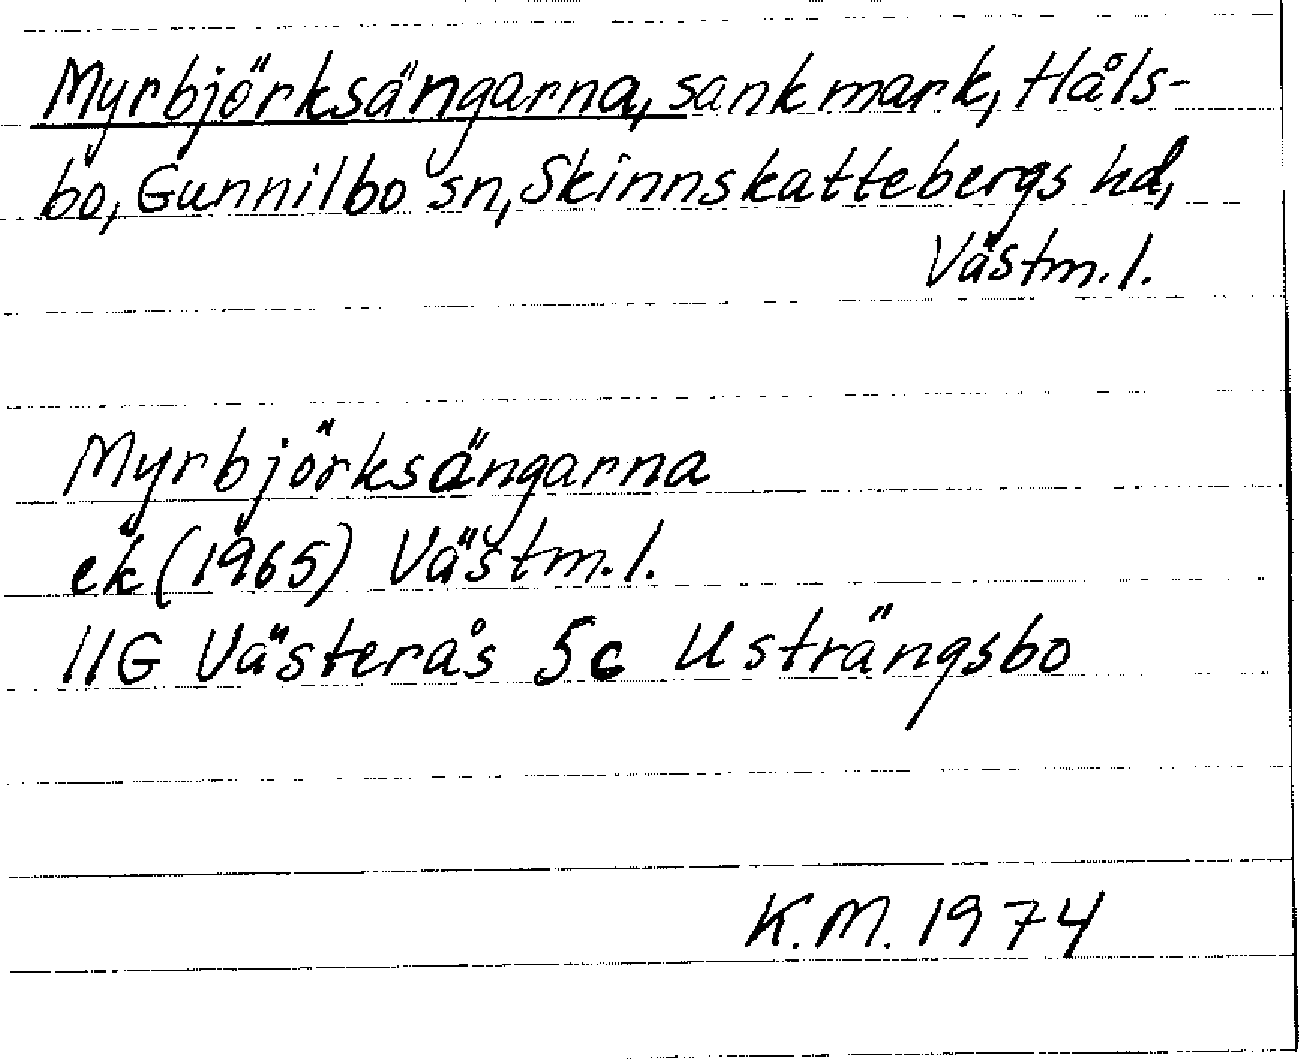 Myrbjörksängarna, sankmark, Håls-
bo, Gunnilbo sn, Skinnskattebergs hd,
Västm. l.
Myrbjörksängarna
ek (1965) Västm. l.
11G Västerås 5c Usträngsbo
K.M. 1974